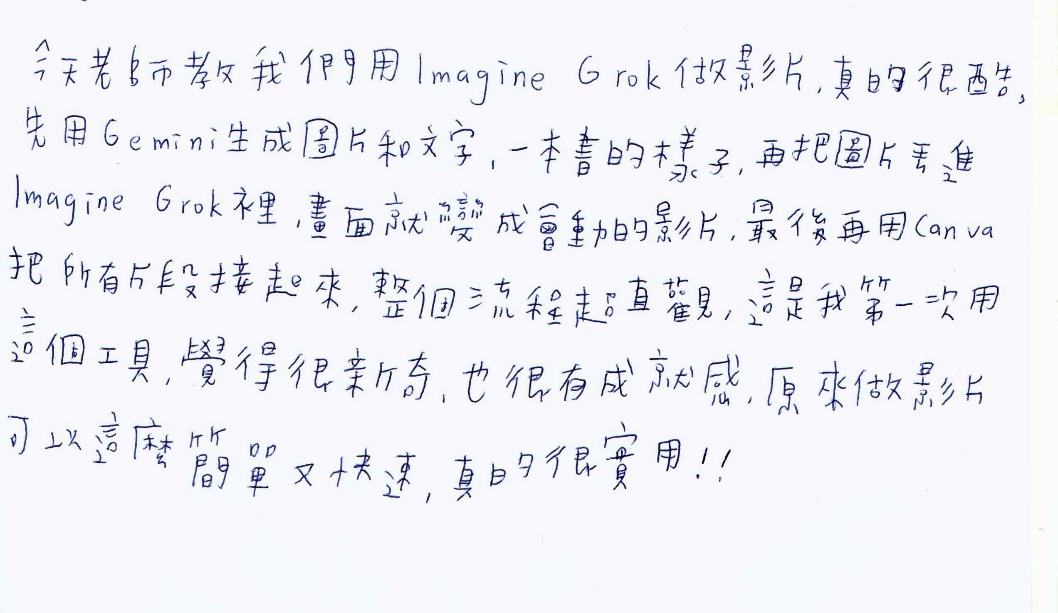 今天老師教我們用Imagine Grok做影片,真的很酷,
先用Gemini生成圖片和文字,一本書的樣子,再把圖片丟進
Imagine Grok裡,畫面就變成會動的影片,最後再用Canva
把所有片段接起來,整個流程超直觀,這是我第一次用
這個工具,覺得很新奇,也很有成就感,原來做影片
可以這麼簡單又快速,真的很實用!!